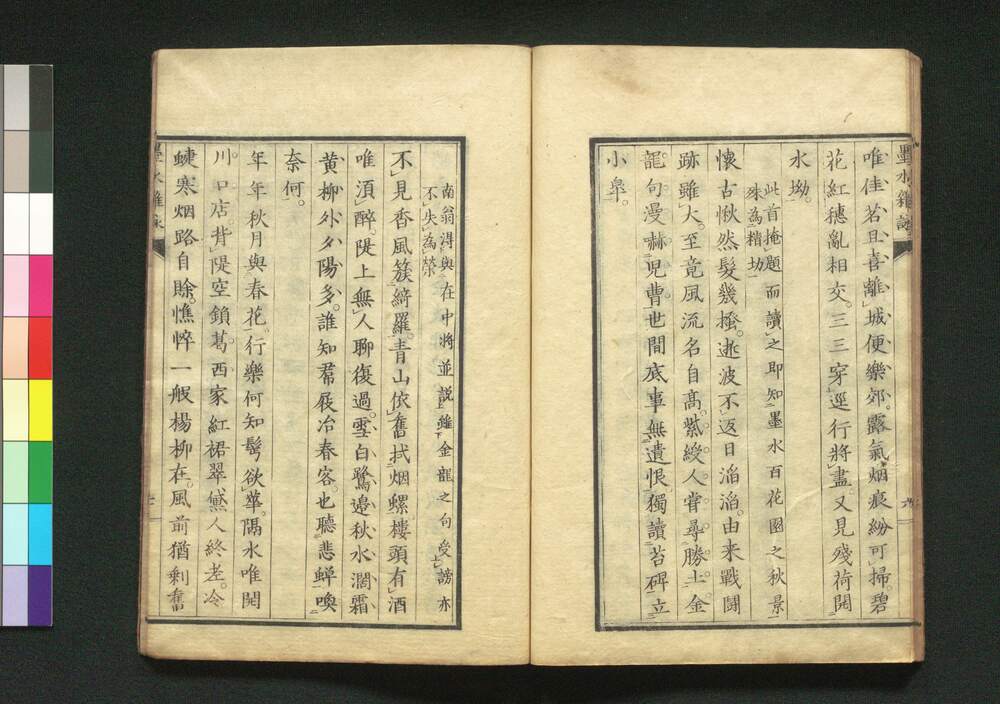 墨水雜詠
唯佳若且喜離城便樂郊露氣烟痕紛可掃碧
花紅穗亂相交三三穿逕行將盡又見殘荷開
水坳
此首掩題而讀之即知墨水百花園之秋景
殊為精切
懷古愀然髮幾搔逝波不返日滔滔由来戰鬪
跡雖大至竟風流名自高紫綬人甞尋勝土金
龍句漫嚇兒曹世間底事無遺恨獨讀苔碑立
小皐
六
南翁淂與在中將並説雖金龍之句受謗亦
不失為榮
不見香風簇綺羅青山依舊拭烟螺樓頭有酒
唯湏醉隄上無人聊復過雪白鷺邊秋水濶霜
黄柳外夕陽多誰知羣屐冶春客也聽悲蝉喚
奈何
年年秋月與春花行樂何知鬂欲華隔水唯開
川口店背隄空鎖葛西家紅裙翠黛人終老冷
蜨寒烟路自賖憔悴一般楊柳在風前猶剰舊
墨水雜詠
七